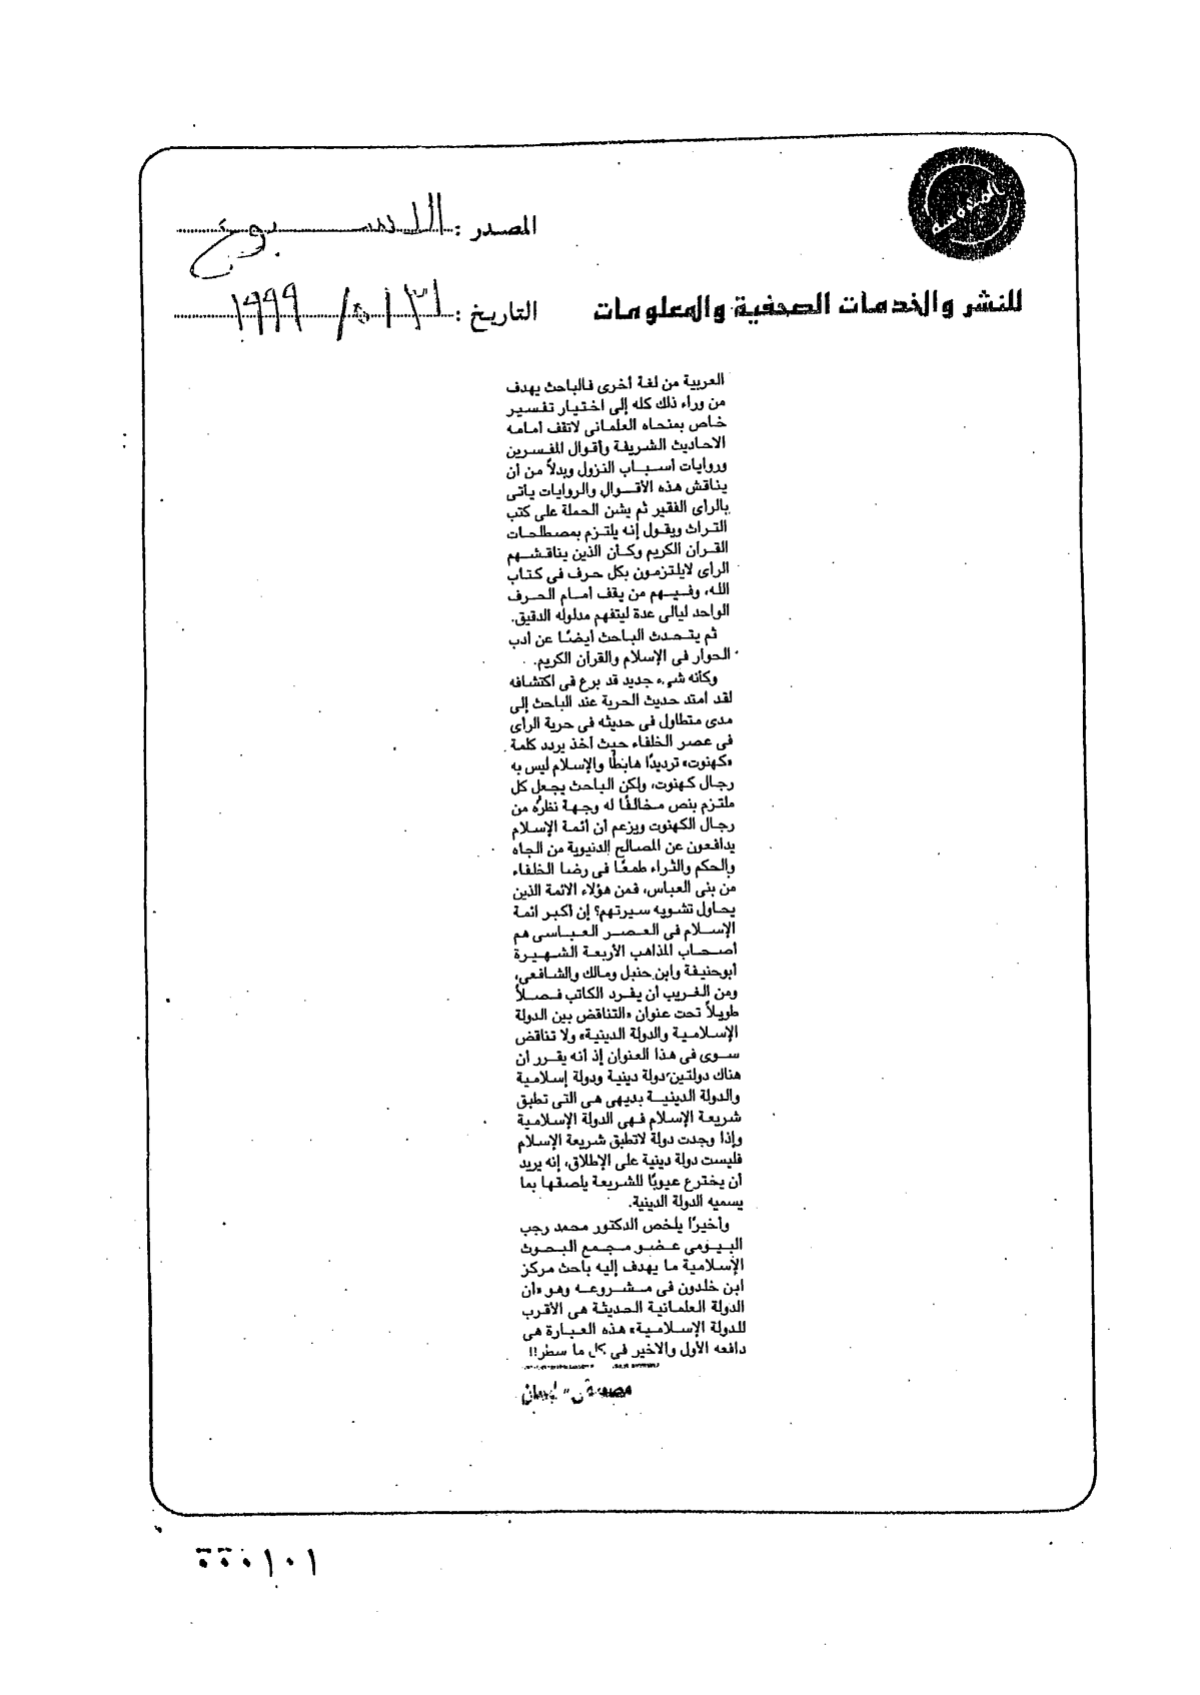 المصدر : الاسبوع
للنشر والخدمات الصحفية والمعلومات
التاريخ : ٣١ / ٥ / ١٩٩٩
العربية من لغة أخرى فالباحث يهدف
من وراء ذلك كله إلى اختيار تفسير
خاص بمنحاه العلمانى لاتقف أمامه
الاحاديث الشريفة وأقوال المفسرين
وروايات أسباب النزول وبدلاً من أن
يناقش هذه الأقوال والروايات يأتى
بالرأى الفقير ثم يشن الحملة على كتب
التراث ويقول إنه يلتزم بمصطلحات
القرآن الكريم وكأن الذين يناقشهم
الرأى لايلتزمون بكل حرف فى كتاب
الله، وفيهم من يقف أمام الحرف
الواحد ليالى عدة ليتفهم مدلوله الدقيق.
ثم يتحدث الباحث أيضًا عن أدب
الحوار فى الإسلام والقرآن الكريم.
وكأنه شىء جديد قد برع فى اكتشافه
لقد امتد حديث الحرية عند الباحث إلى
مدى متطاول فى حديثه فى حرية الرأى
فى عصر الخلفاء حيث أخذ يردد كلمة
«كهنوت» ترديدًا هابطًا والإسلام ليس به
رجال كهنوت، ولكن الباحث يجعل كل
ملتزم بنص مخالفًا له وجهة نظره من
رجال الكهنوت ويزعم أن أئمة الإسلام
يدافعون عن المصالح الدنيوية من الجاه
والحكم والثراء طمعًا فى رضا الخلفاء
من بنى العباس، فمن هؤلاء الائمة الذين
يحاول تشويه سيرتهم؟ إن أكبر ائمة
الإسلام فى العصر العباسى هم
أصحاب المذاهب الأربعة الشهيرة
أبوحنيفة وابن حنبل ومالك والشافعى،
ومن الغريب أن يفرد الكاتب فصلاً
طويلاً تحت عنوان «التناقض بين الدولة
الإسلامية والدولة الدينية» ولا تناقض
سوى فى هذا العنوان إذ أنه يقرر أن
هناك دولتين دولة دينية ودولة إسلامية
والدولة الدينية بديهى هى التى تطبق
شريعة الإسلام فهى الدولة الإسلامية
وإذا وجدت دولة لاتطبق شريعة الإسلام
فليست دولة دينية على الإطلاق، إنه يريد
أن يخترع عيوبًا للشريعة يلصقها بما
يسميه الدولة الدينية.
وأخيرًا يلخص الدكتور محمد رجب
البيومى عضو مجمع البحوث
الإسلامية ما يهدف إليه باحث مركز
ابن خلدون فى مشروعه وهو «أن
الدولة العلمانية الحديثة هى الأقرب
للدولة الإسلامية» هذه العبارة هى
دافعه الأول والاخير فى كل ما سطر!!